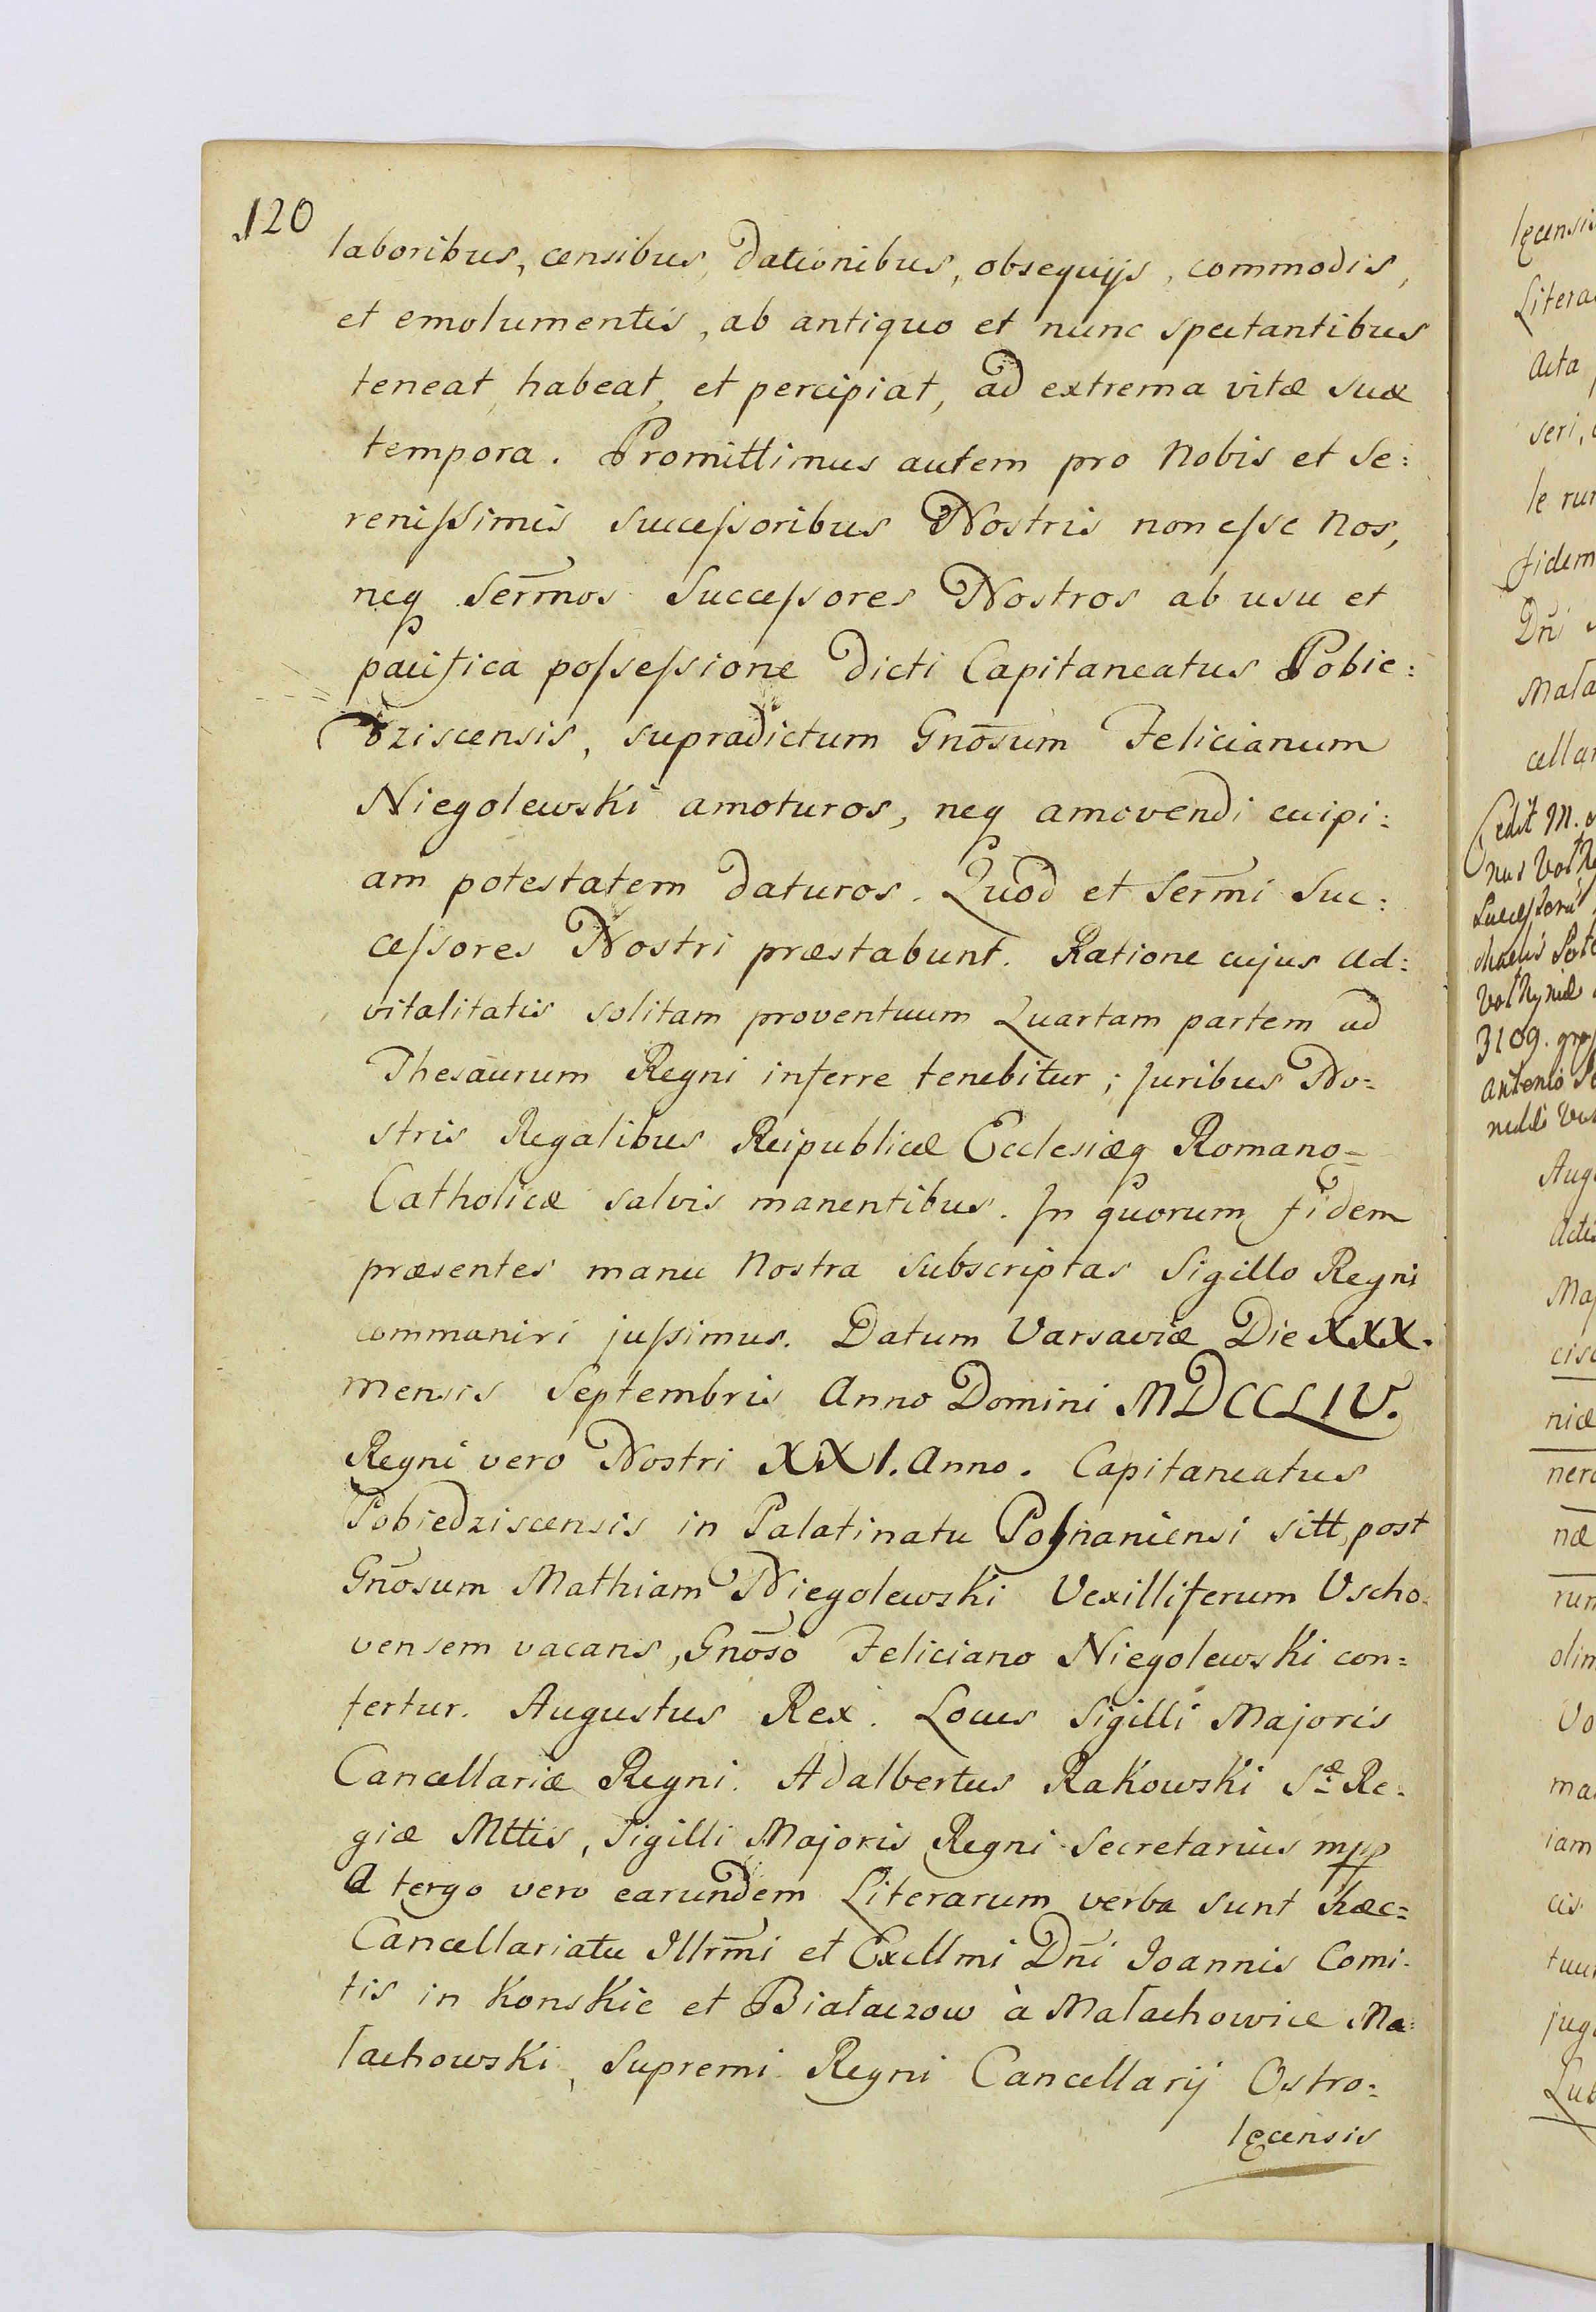 120
laboribus, censibus, dationibus, obsequijs, commodis,
et emolumentis, ab antiquo et nunc spectantibus
teneat, habeat, et percipiat, ad extrema vitæ suæ
tempora. Promittimus autem pro Nobis et Se:
renissimis Successoribus Nostris non esse Nos,
neq Serm̄os Successores Nostros ab usu et
pacifica possessione dicti Capitaneatus Pobie:
dziscensis, supradictum Gnōsum Felicianum
Niegolewski amoturos, neq amovendi cuipi:
am potestatem daturos. Quod et Serm̄i Suc:
cessores Nostri præstabunt. Ratione cujus ad:
vitalitatis solitam proventuum Quartam partem ad
Thesaurum Regni inferre tenebitur; juribus No:
stris Regalibus Reipublicæ Ecclesiæq Romano=
Catholicæ salvis manentibus. In quorum fidem
præsentes manu Nostra subscriptas Sigillo Regni
commaniri jussimus. Datum Varsaviæ Die XXX.
mensis Septembris Anno Domini MDCCLIV.
Regni vero Nostri XXI. Anno. Capitaneatus
Pobiedziscensis in Palatinatu Posnaniensi sitt, post
Gnōsum Mathiam Niegolewski Vexilliferum Vscho:
vensem vacans, Gnōso Feliciano Niegolewski con=
fertur. Augustus Rex. Locus Sigilli Majoris
Cancellariæ Regni. Adalbertus Rakowski Sæ Re:
giæ Mttis, Sigilli Majoris Regni Secretarius mpp
A tergo vero earundem Literarum verba sunt hæc=
Cancellariatu Illrm̄i et Excllmi Dn̄i Joannis Comi:
tis in Konskie et Białaczow à Małachowice Ma:
łachowski, Supremi Regni Cancellarij Ostro:
lęcensis
lęcensis
Litera
Acta
seri,
fidem
Dn̄i
Mała
cellar
Cedit M.
3109.
Antonio